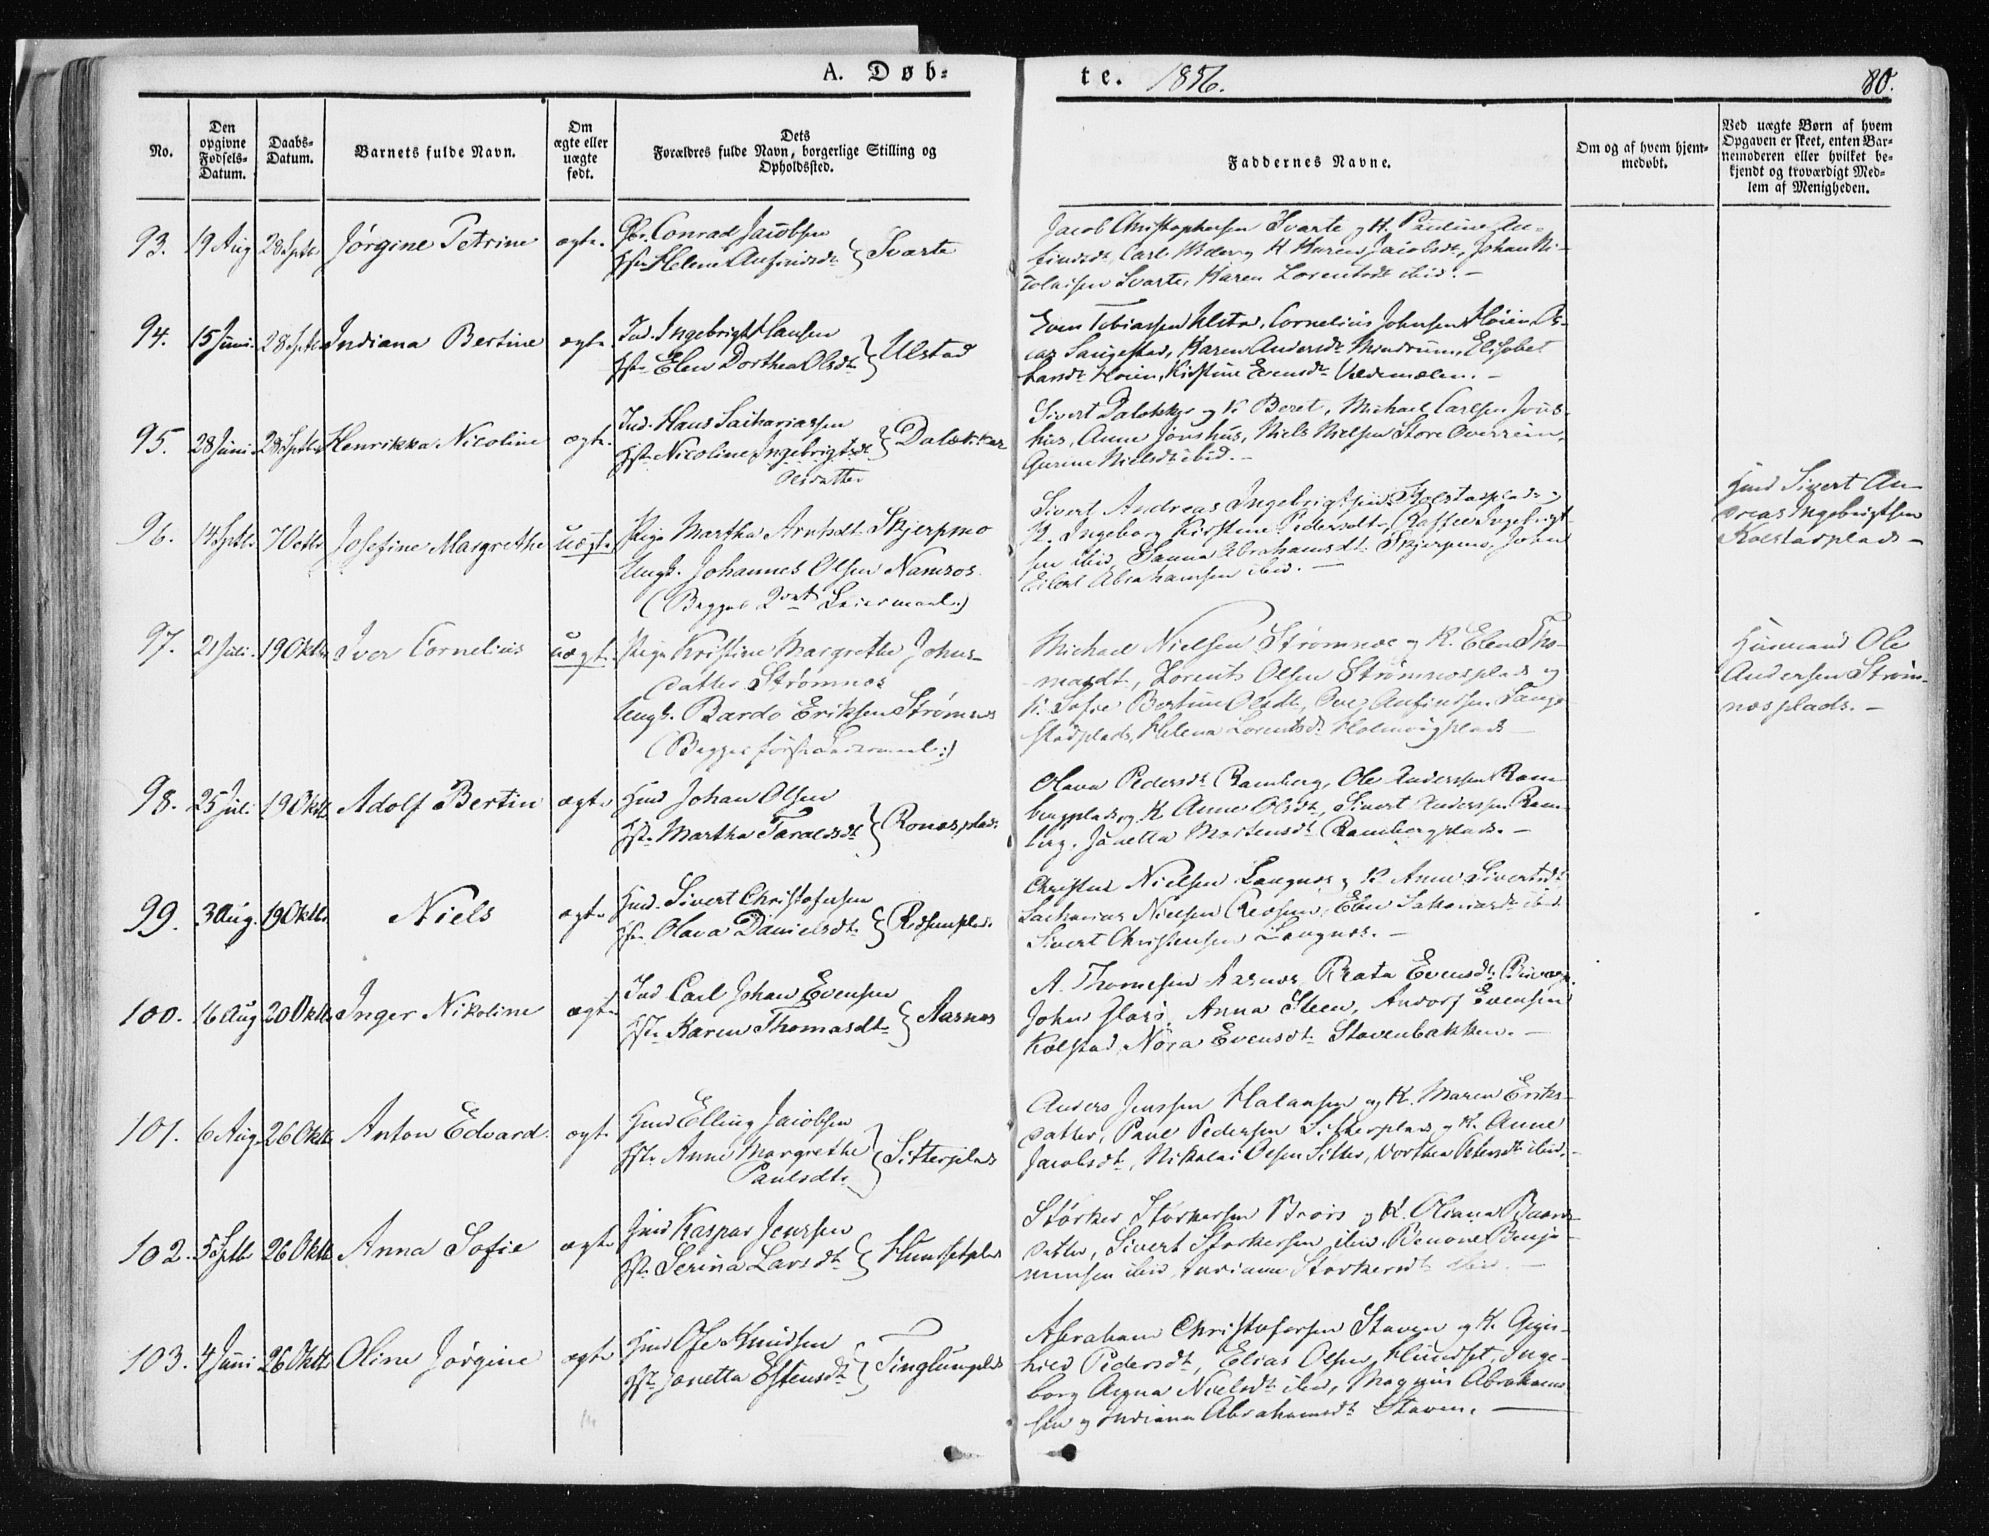 A. Døb-
te. 1856.
80.
No.
Den opgivne Fødsels-Datum.
Daabs-Datum.
Barnets fulde Navn.
Om ægte eller uægte født.
Dets Forældres fulde Navn, borgerlige Stilling og Opholdssted.
Faddernes Navne.
Om og af hvem hjem-medøbt.
Ved uægte Børn af hvem Opgaven er skeet, enten Bar-nemoderen eller hvilket be-kjendt og troværdigt Med-lem af Menigheden.
93. 19 Aug 28 Septbr Jørgine Petrine ægte
Conrad Jacobsen
Hst. Helene Anfindsdt. } Svarte
Jacob Christophersen Svarte og K. Pauline An-
findsdt. Carl og K Karen Jacobsdt, Johan Ni-
kolaisen Svarte, Karen Lorentsdt ibid. -
94. 15 Juni 28 Septbr Indiana Bertine ægte
Ind. Ingebrigt Hansen
Hst. Elen Dorthea Olsdt. } Ulstad
Even Tobiassen Ulstad, Cornelius Johnsen Høien,
Saugestad, Karen Andersdt Mindrum, Elisabet
Larsdt Høien, Kirstine Evensdt -
95. 28 Juni 28 Septbr Henrikka Nicoline ægte
Ind. Hans Sachariassen
Hst. Nicoline Ingebrigtsdt
Olsdatter
Sivert og K Beret, Michael Carlsen Jøns-
hus, Anne Jønshus, Niels Nielsen Store Overrein,
Gurine Nielsdt ibid. -
96. 14 Septbr 7 Octbr Josefine Margrethe uægte
Pige Martha Arntsdt. Skjerpmo
Ungk. Johannes Olsen Namsos.
(Begges 2det Leiermaal.)
Sivert Andreas Ingebrigtsen Kolstadplads og
K. Ingeborg Kirstine Pedersdt, Ingebrigt-
sen ibid, Hanna Abrahamsdt. Skjerpmo, John
Eilert Abrahamsen ibid. -
Hmd Sivert An-
dreas Ingebrigtsen
Kolstadplads -
97. 21 Juli 19 Oktbr Iver Cornelius uægte
Pige Kristine Margrethe Johns-
datter Strømnes
Ungk. Bardo Eriksen Strømnes
(Begges første Leiermaal.)
Michael Nielsen Strømnæs og K. Elen Tho-
masdt, Lorents Olsen Strømnesplads og
K. Sofie Bertine Olsdt, Ove Anfindsen Sauge-
stadplads, Helena Lorentsdt Holmvigplads
Husmand Ole
Andersen Strøm-
nesplads. -
98. 25 Juli 19 Oktbr Adolf Bertin ægte
Hmd Johan Olsen
Hst. Martha Taraldsdt } Ronæsplads
Olava Pedersdt Ramberg, Ole Anderssen Ram-
bergplads og K Anne Olsdt, Sivert Anderssen Ram-
berg, Janetta Mortensdt Rambergplads. -
99. 3 Aug. 19 Oktbr Niels ægte
Hmd. Sivert Christofersen
Hst. Olava Danielsdt. }
Christen Nielsen Langnes og K Anne Sivertsdt
Sacharias Nielsen, Elen Sakariasdt ibid.
Sivert Christensen Langnæs. -
100. 16 Aug 20 Oktbr Inger Nikoline ægte
Ind Carl Johan Evensen
Hst. Karen Thomasdt. } Aarnes
A. Thomesen Aarnes, Beata Evensdt
John, Anna Steen, Andor Evensen
Kolstad, Nora Evensdt. Stavenbakken. -
101. 6 Aug. 26 Oktbr Anton Edvard ægte
Hmd Elling Jacobsen
Hst. Anne Margrethe
Paulsdt. } Sitterplads
Anders Jenssen Halansen og K. Maren Eriks-
datter, Paul Pedersen Sitterplads og K. Anne
Jacobsdt, Nikolai Olsen Sitter, Dorthea Petersdt ibid. -
102. 5 Septbr 26 Oktbr Anna Sofie ægte
Hmd Kaspar Jenssen
Hst. Serina Larsdt } Hundsetplads
Størker Størkersen Brørs og K. Oliana Baards-
datter, Sivert Størkersen ibid. Benone Benja-
minsen ibid, Indiana Størkersdt ibid. -
103. 4 Juni 26 Oktbr Oline Jørgine ægte
Hmd Ole Knudsen
Hst. Janetta Estensdt } Tinglumplads
Abraham Christofersen Staven og K. Gun-
hild Pedersdt, Elias Olsen Hundset, Inge-
borg Nielsdt ibid, Magnus Abraham-
sen og Indiana Abrahamsdt Staven. -